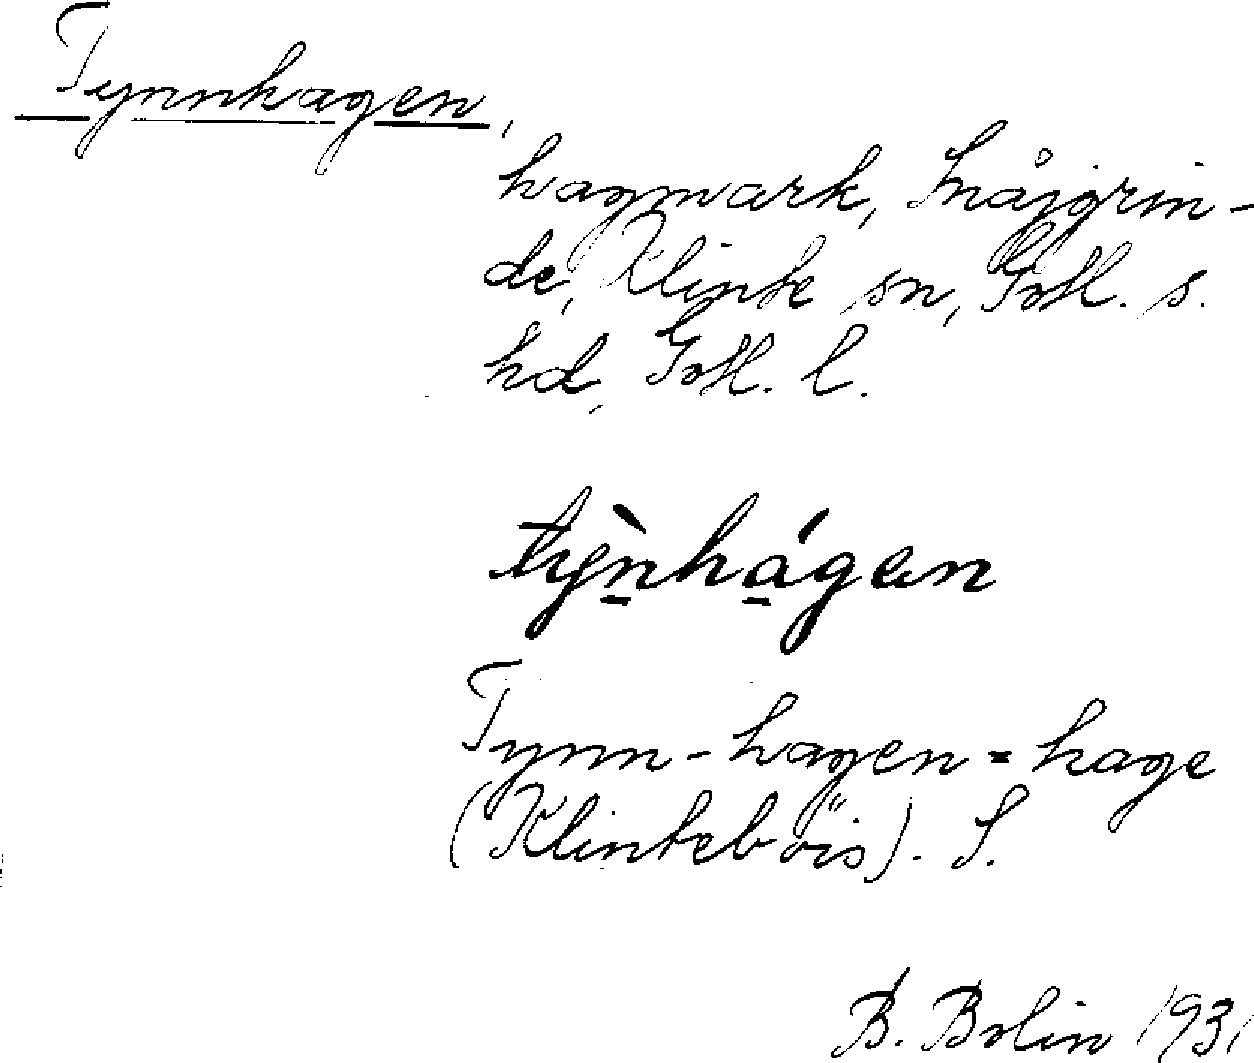 Tynnhagen,
hagmark, Snäjgrin-
de, Klinte sn, Gotl. s.
hd, Gotl. l.
tỳnhágan
Tynn-hagen = hage
(Klinteböis). S.
B. Bolin 1931